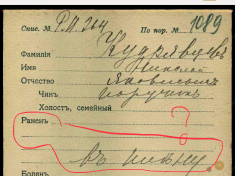 Спис. № Р.М 264 По пор. № 1089
Фамилія Кудрявцевъ
Имя Николай
Отчество Яковлевичъ
Чинъ поручикъ
Холостъ, семейный
Раненъ ?
въ плѣну.
Болен